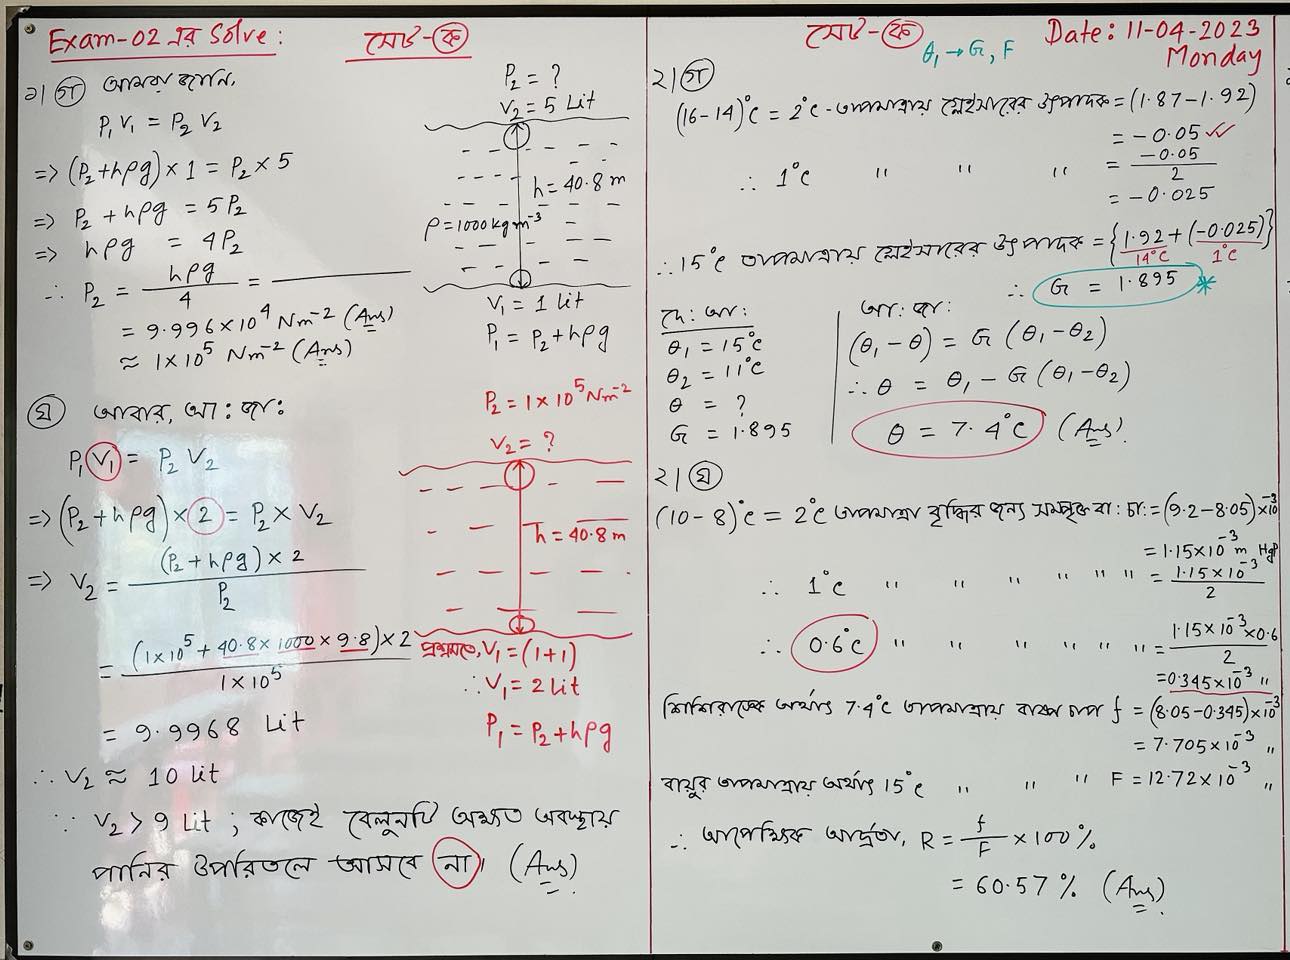 Exam-02 এর Solve: সেট-ক
১। গ আমরা জানি,
P₁V₁ = P₂V₂
=> (P₂+hρg)×1 = P₂×5
=> P₂+hρg = 5P₂
=> hρg = 4P₂
∴ P₂ = hρg/4 =
= 9.996×10⁴ Nm⁻² (Ans)
≈ 1×10⁵ Nm⁻² (Ans)
P₂ = ?
V₂ = 5 Lit
h = 40.8 m
ρ = 1000 kgm⁻³
V₁ = 1 Lit
P₁ = P₂+hρg
ঘ আবার, আ: জা:
P₁V₁ = P₂V₂
=> (P₂+hρg)×2 = P₂×V₂
=> V₂ = (P₂+hρg)×2/P₂
= (1×10⁵+40.8×1000×9.8)×2/1×10⁵
= 9.9968 Lit
∴ V₂ ≈ 10 Lit
∵ V₂ > 9 Lit ; কাজেই বেলুনটি অক্ষত অবস্থায়
পানির উপরিতলে আসবে না। (Ans)
P₂ = 1×10⁵ Nm⁻²
V₂ = ?
h = 40.8 m
প্রশ্নমতে, V₁ = (1+1)
∴ V₁ = 2 Lit
P₁ = P₂+hρg
সেট-ক θ₁ → G, F Date: 11-04-2023
Monday
২। গ
(16-14)°C = 2°C তাপমাত্রায় গ্লেইসারের উৎপাদক = (1.87-1.92)
= -0.05
∴ 1°C " " " = -0.05/2
= -0.025
∴ 15°C তাপমাত্রায় গ্লেইসারের উৎপাদক = {1.92+(-0.025)}
14°C 1°C
∴ G = 1.895 *
দে: আ:
θ₁ = 15°C
θ₂ = 11°C
θ = ?
G = 1.895
আ: জা:
(θ₁-θ) = G (θ₁-θ₂)
∴ θ = θ₁ - G (θ₁-θ₂)
θ = 7.4°C (Ans).
২। ঘ
(10-8)°C = 2°C তাপমাত্রা বৃদ্ধির জন্য সম্পৃক্ত বা: চা: = (9.2-8.05)×10⁻³
= 1.15×10⁻³ m HgP
∴ 1°C " " " " " " = 1.15×10⁻³/2
∴ 0.6°C " " " " " " = 1.15×10⁻³×0.6/2
= 0.345×10⁻³ "
শিশিরাঙ্কে অর্থাৎ 7.4°C তাপমাত্রায় বাষ্প চাপ f = (8.05-0.345)×10⁻³
= 7.705×10⁻³ "
বায়ুর তাপমাত্রায় অর্থাৎ 15°C " " " F = 12.72×10⁻³ "
∴ আপেক্ষিক আর্দ্রতা, R = f/F × 100%
= 60.57% (Ans).